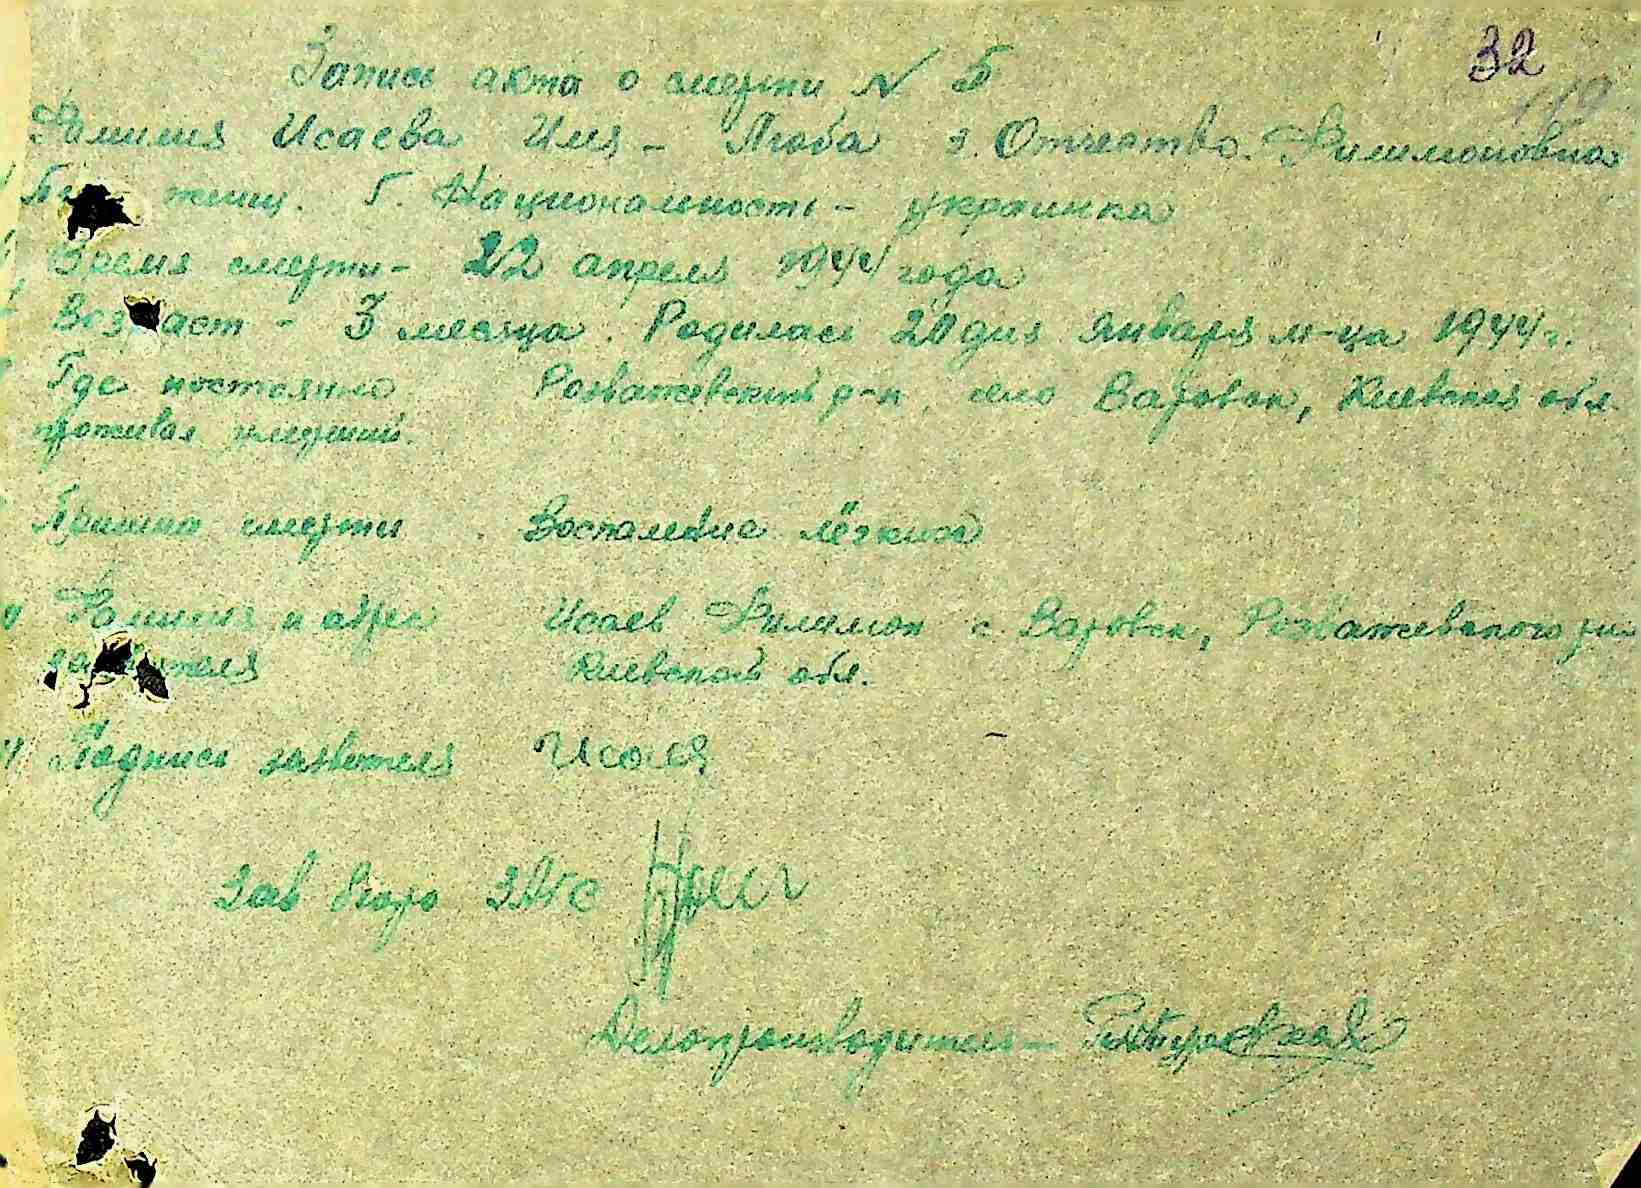 32
Запись акта о смерти N 5
Фамилия Исаева Имя - Люба з. Отчество. Филимоновна
жінщ. Г. Национальность - украинка
Время смерти - 22 апреля 1944 года
Воз аст - 3 месяца. Родилась 20 дня января м-ца 1944 г.
Где постоянно Розважевский р-н, село Варовск, Киевская обл.
проживал умерший.
Причина смерти. Воспаление лёгких
Фамилия и адрес Исаев Филимон с. Варовск, Розважевского
Киевской обл.
Подпись заявителя Исаев
Зав бюро ЗАГС
Делопроизводитель -